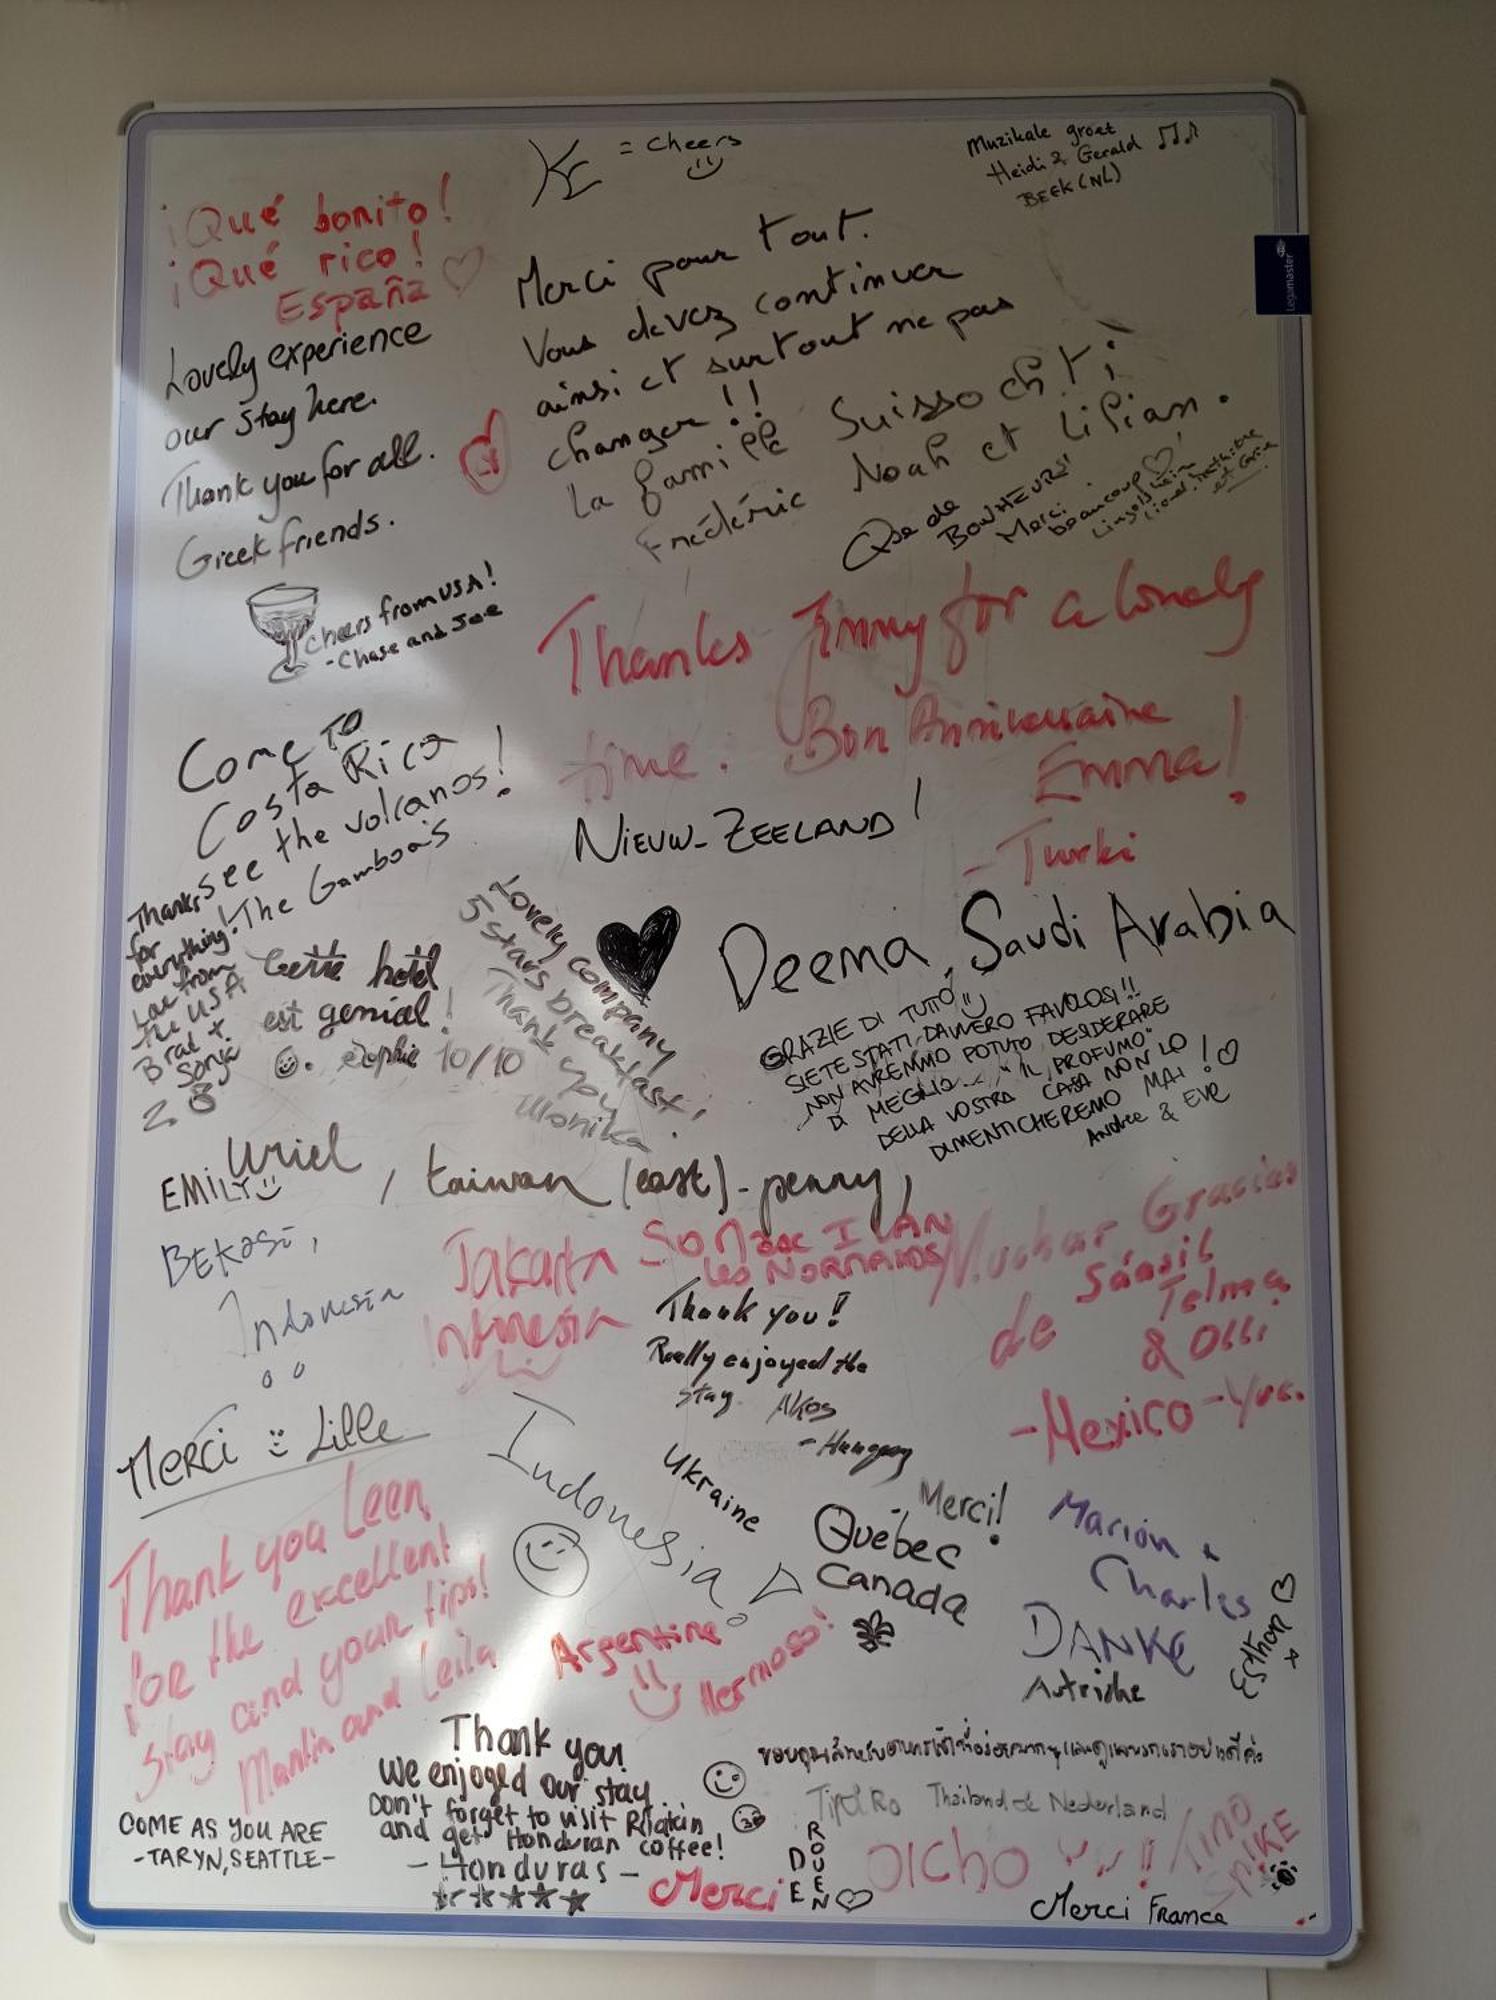 = cheers
Muzikale groet
Heidi & Gerald
BEEK (NL)
Legamaster
¡Qué bonito!
¡Qué rico!
España
Lovely experience
our stay here.
Thank you for all.
Greek friends.
Merci pour tout.
Vous devez continuer
ainsi et surtout ne pas
changer !!
La famille Suisso ch'ti
Frédéric Noah et Lilian.
Que de
BONHEURS!
Merci
beaucoup
et
Cheers from USA!
- Chase and Joe
Thanks Jimmy for a lovely
time. Bon Anniversaire
Emma!
- Turki
Come TO
Costa Rica
see the volcanos!
The Gamboa's
NIEUW-ZEELAND!
Thanks
for
everything!
Love from
the USA
Brad +
Sonja
Cette hotel
est genial!
Sophie 10/10
Lovely company
5 stars breakfast!
Thank you
Monika
Deema, Saudi Arabia
GRAZIE DI TUTTO
SIETE STATI DAVVERO FAVOLOSI!!
NON AVREMMO POTUTO DESIDERARE
DI MEGLIO... "IL PROFUMO"
DELLA VOSTRA CASA NON LO
DIMENTICHEREMO MAI!
Andrea & EVE
Uriel
EMILY
, taiwan (east) - penny,
BEKASI,
Indonesia
Jakarta
Indonesia
ILAN
LES NORMANDS
Muchas Gracias
de
Telma
& Olli
- Mexico - Yuc.
Thank you!!
Really enjoyed the
stay Akos
- Hungary
Merci Lille
Indonesia
Ukraine
Merci!
Québec
Canada
Marion &
Charles
DANKE
Autriche
Esther
Thank you Leen
for the excellent
stay and your tips!
Manlin and Leila
Argentina
Hermoso!
Thank you!
We enjoyed our stay
Don't forget to visit
and get Honduran coffee!
- Honduras -
COME AS YOU ARE
- TARYN, SEATTLE -
Thailand & Nederland
Merci
DE
ROUEN
OICHO
TINO
SPIKE
Merci France